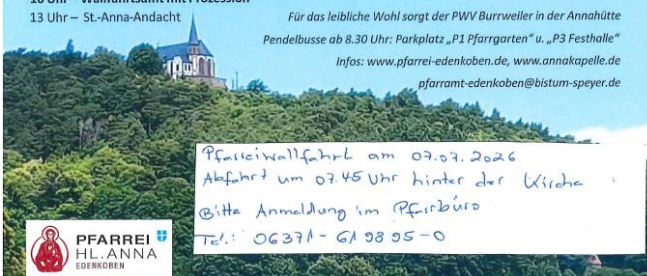 10 Uhr – Wallfahrtsamt mit Prozession
13 Uhr – St.-Anna-Andacht
Für das leibliche Wohl sorgt der PWV Burrweiler in der Annahütte
Pendelbusse ab 8.30 Uhr: Parkplatz „P1 Pfarrgarten" u. „P3 Festhalle"
Infos: www.pfarrei-edenkoben.de, www.annakapelle.de
pfarramt-edenkoben@bistum-speyer.de
Pfarreiwallfahrt am 07.07.2026
Abfahrt um 07.45 Uhr hinter der Kirche
Bitte Anmeldung im Pfarrbüro
Tel.: 06371-619895-0
PFARREI
HL. ANNA
EDENKOBEN